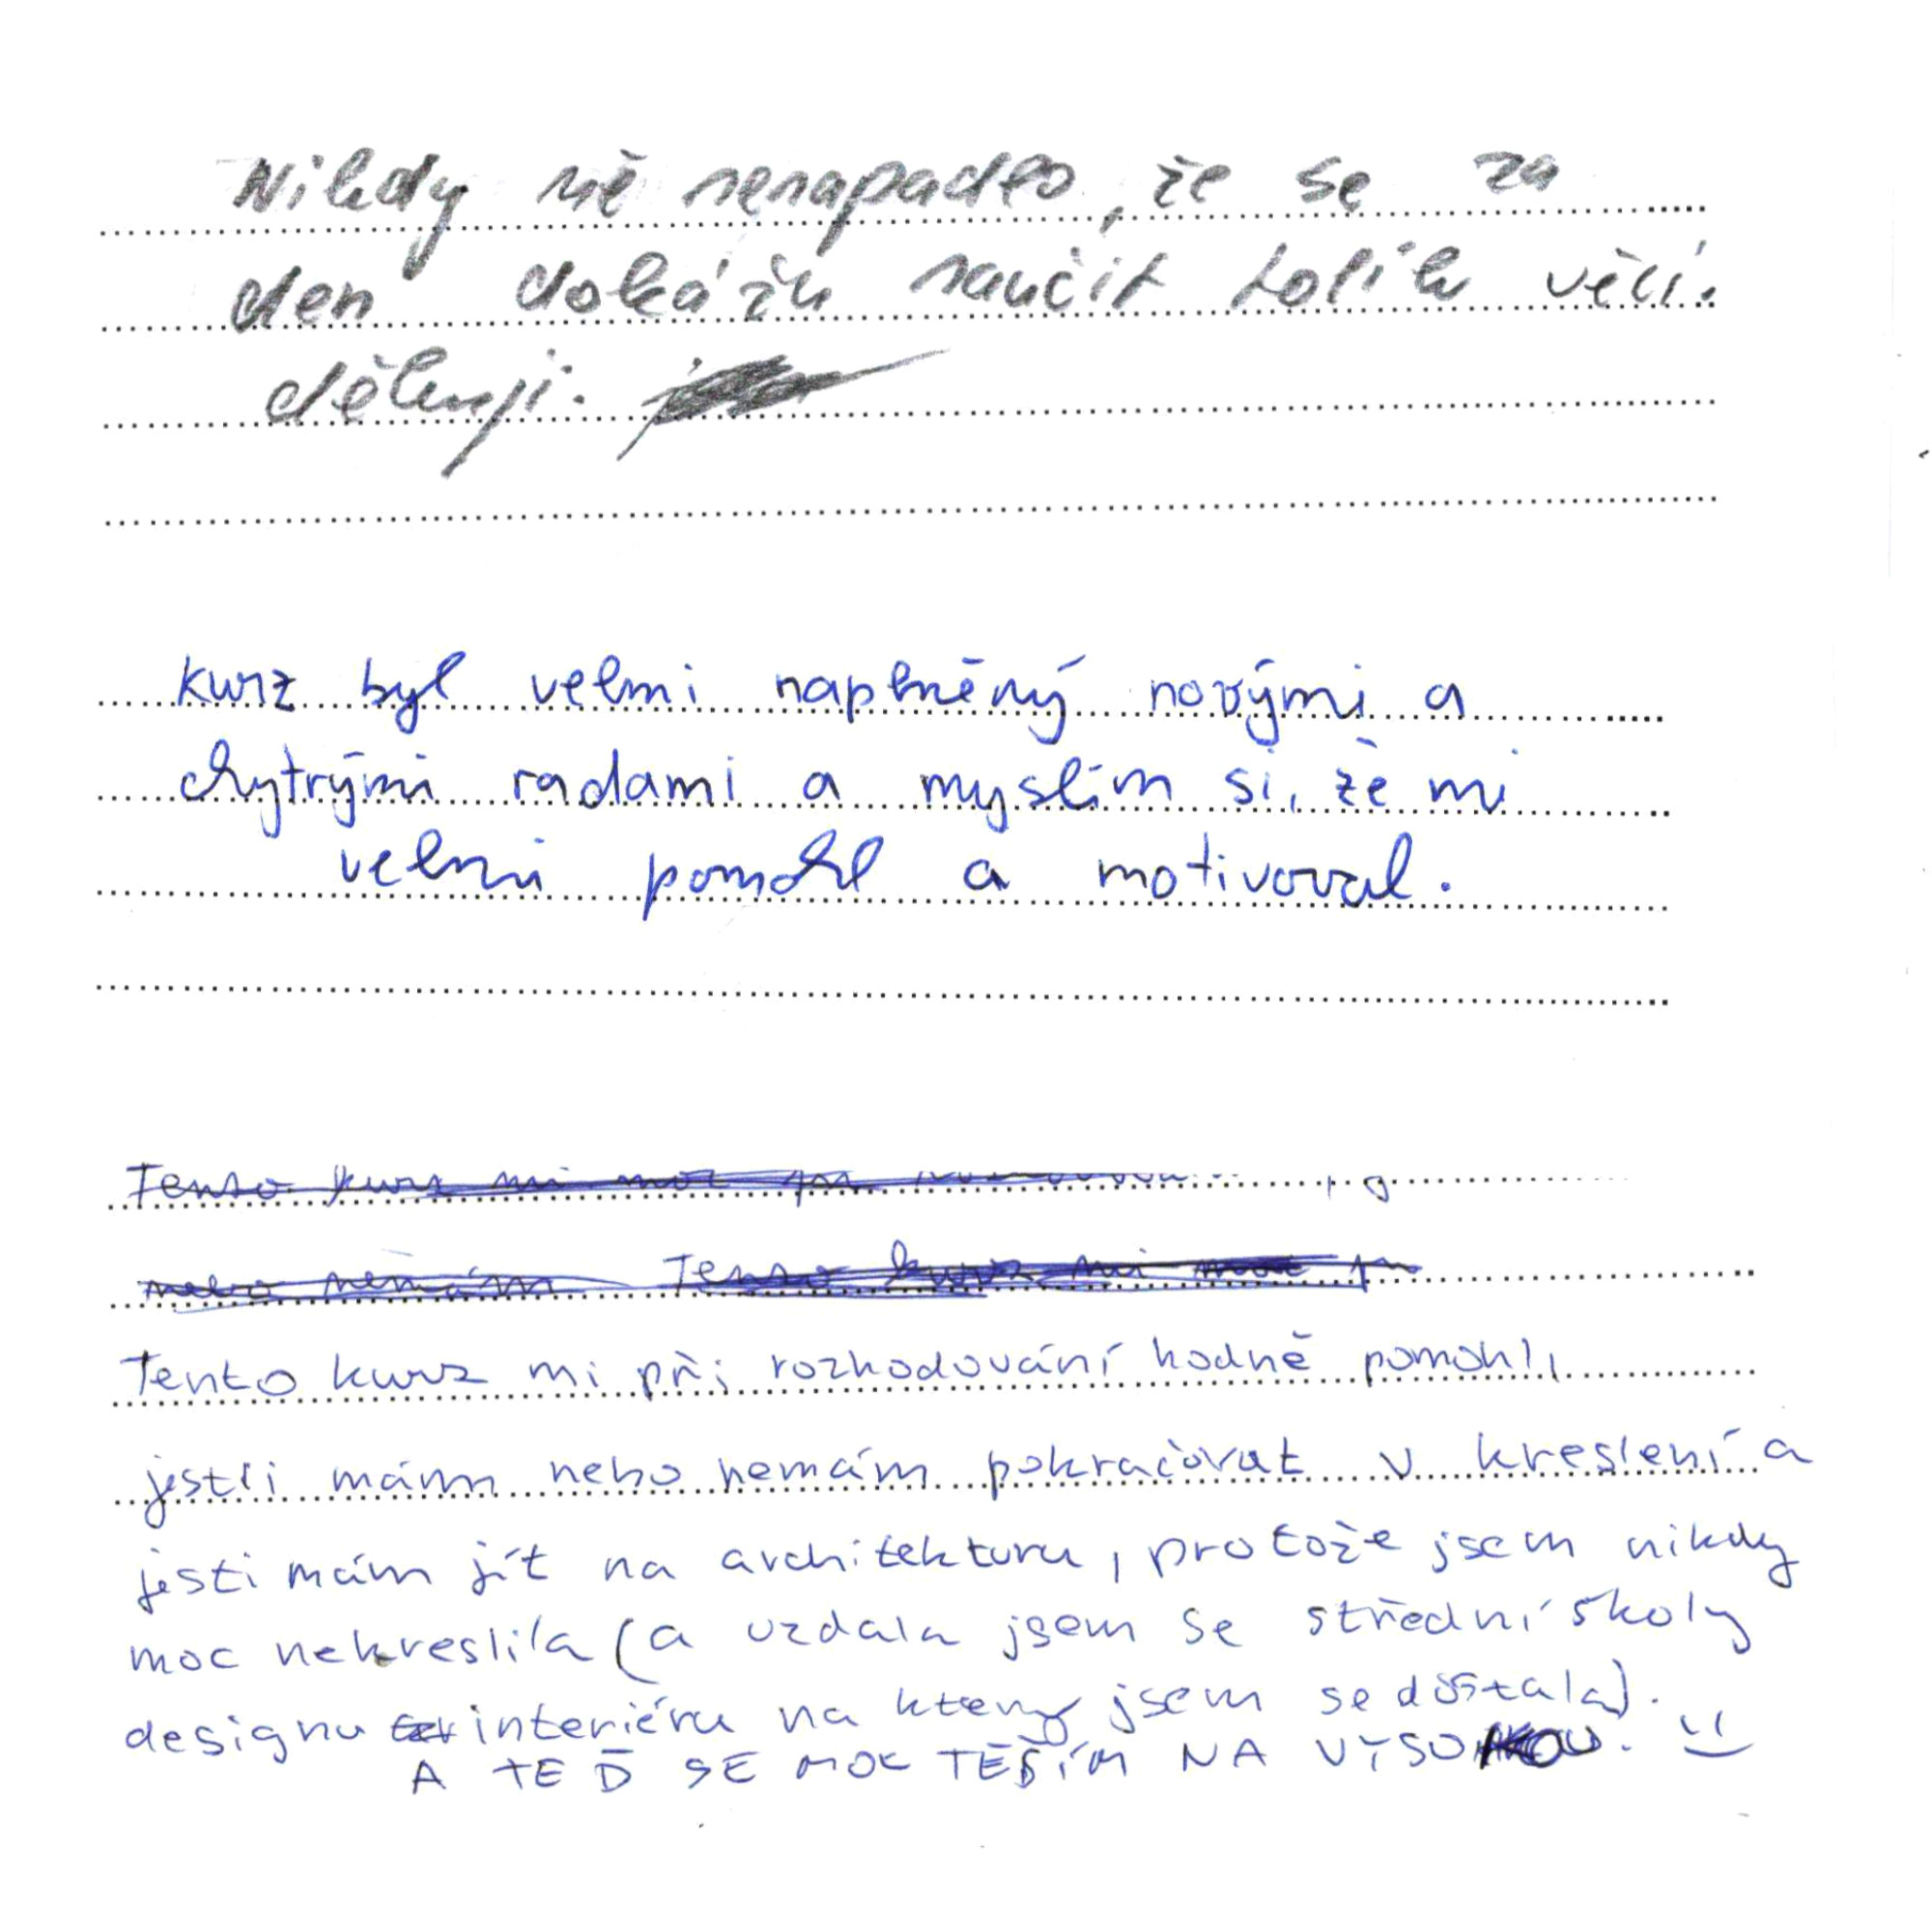 Nikdy mě nenapadlo, že se za
den dokážu naučit tolik věcí.
děkuji.
kurz byl velmi naplněný novými a
chytrými radami a myslím si, že mi
velmi pomohl a motivoval.
Tento kurz mi moc
nebo nemám Tento kurz mi moc
Tento kurz mi při rozhodování hodně pomohl,
jestli mám nebo nemám pokračovat v kreslení a
jesti mám jít na architekturu, protože jsem nikdy
moc nekreslila (a vzdala jsem se střední školy
designu interiéru na který jsem se dostala).
A TEĎ SE MOC TĚŠÍM NA VYSOKOU.